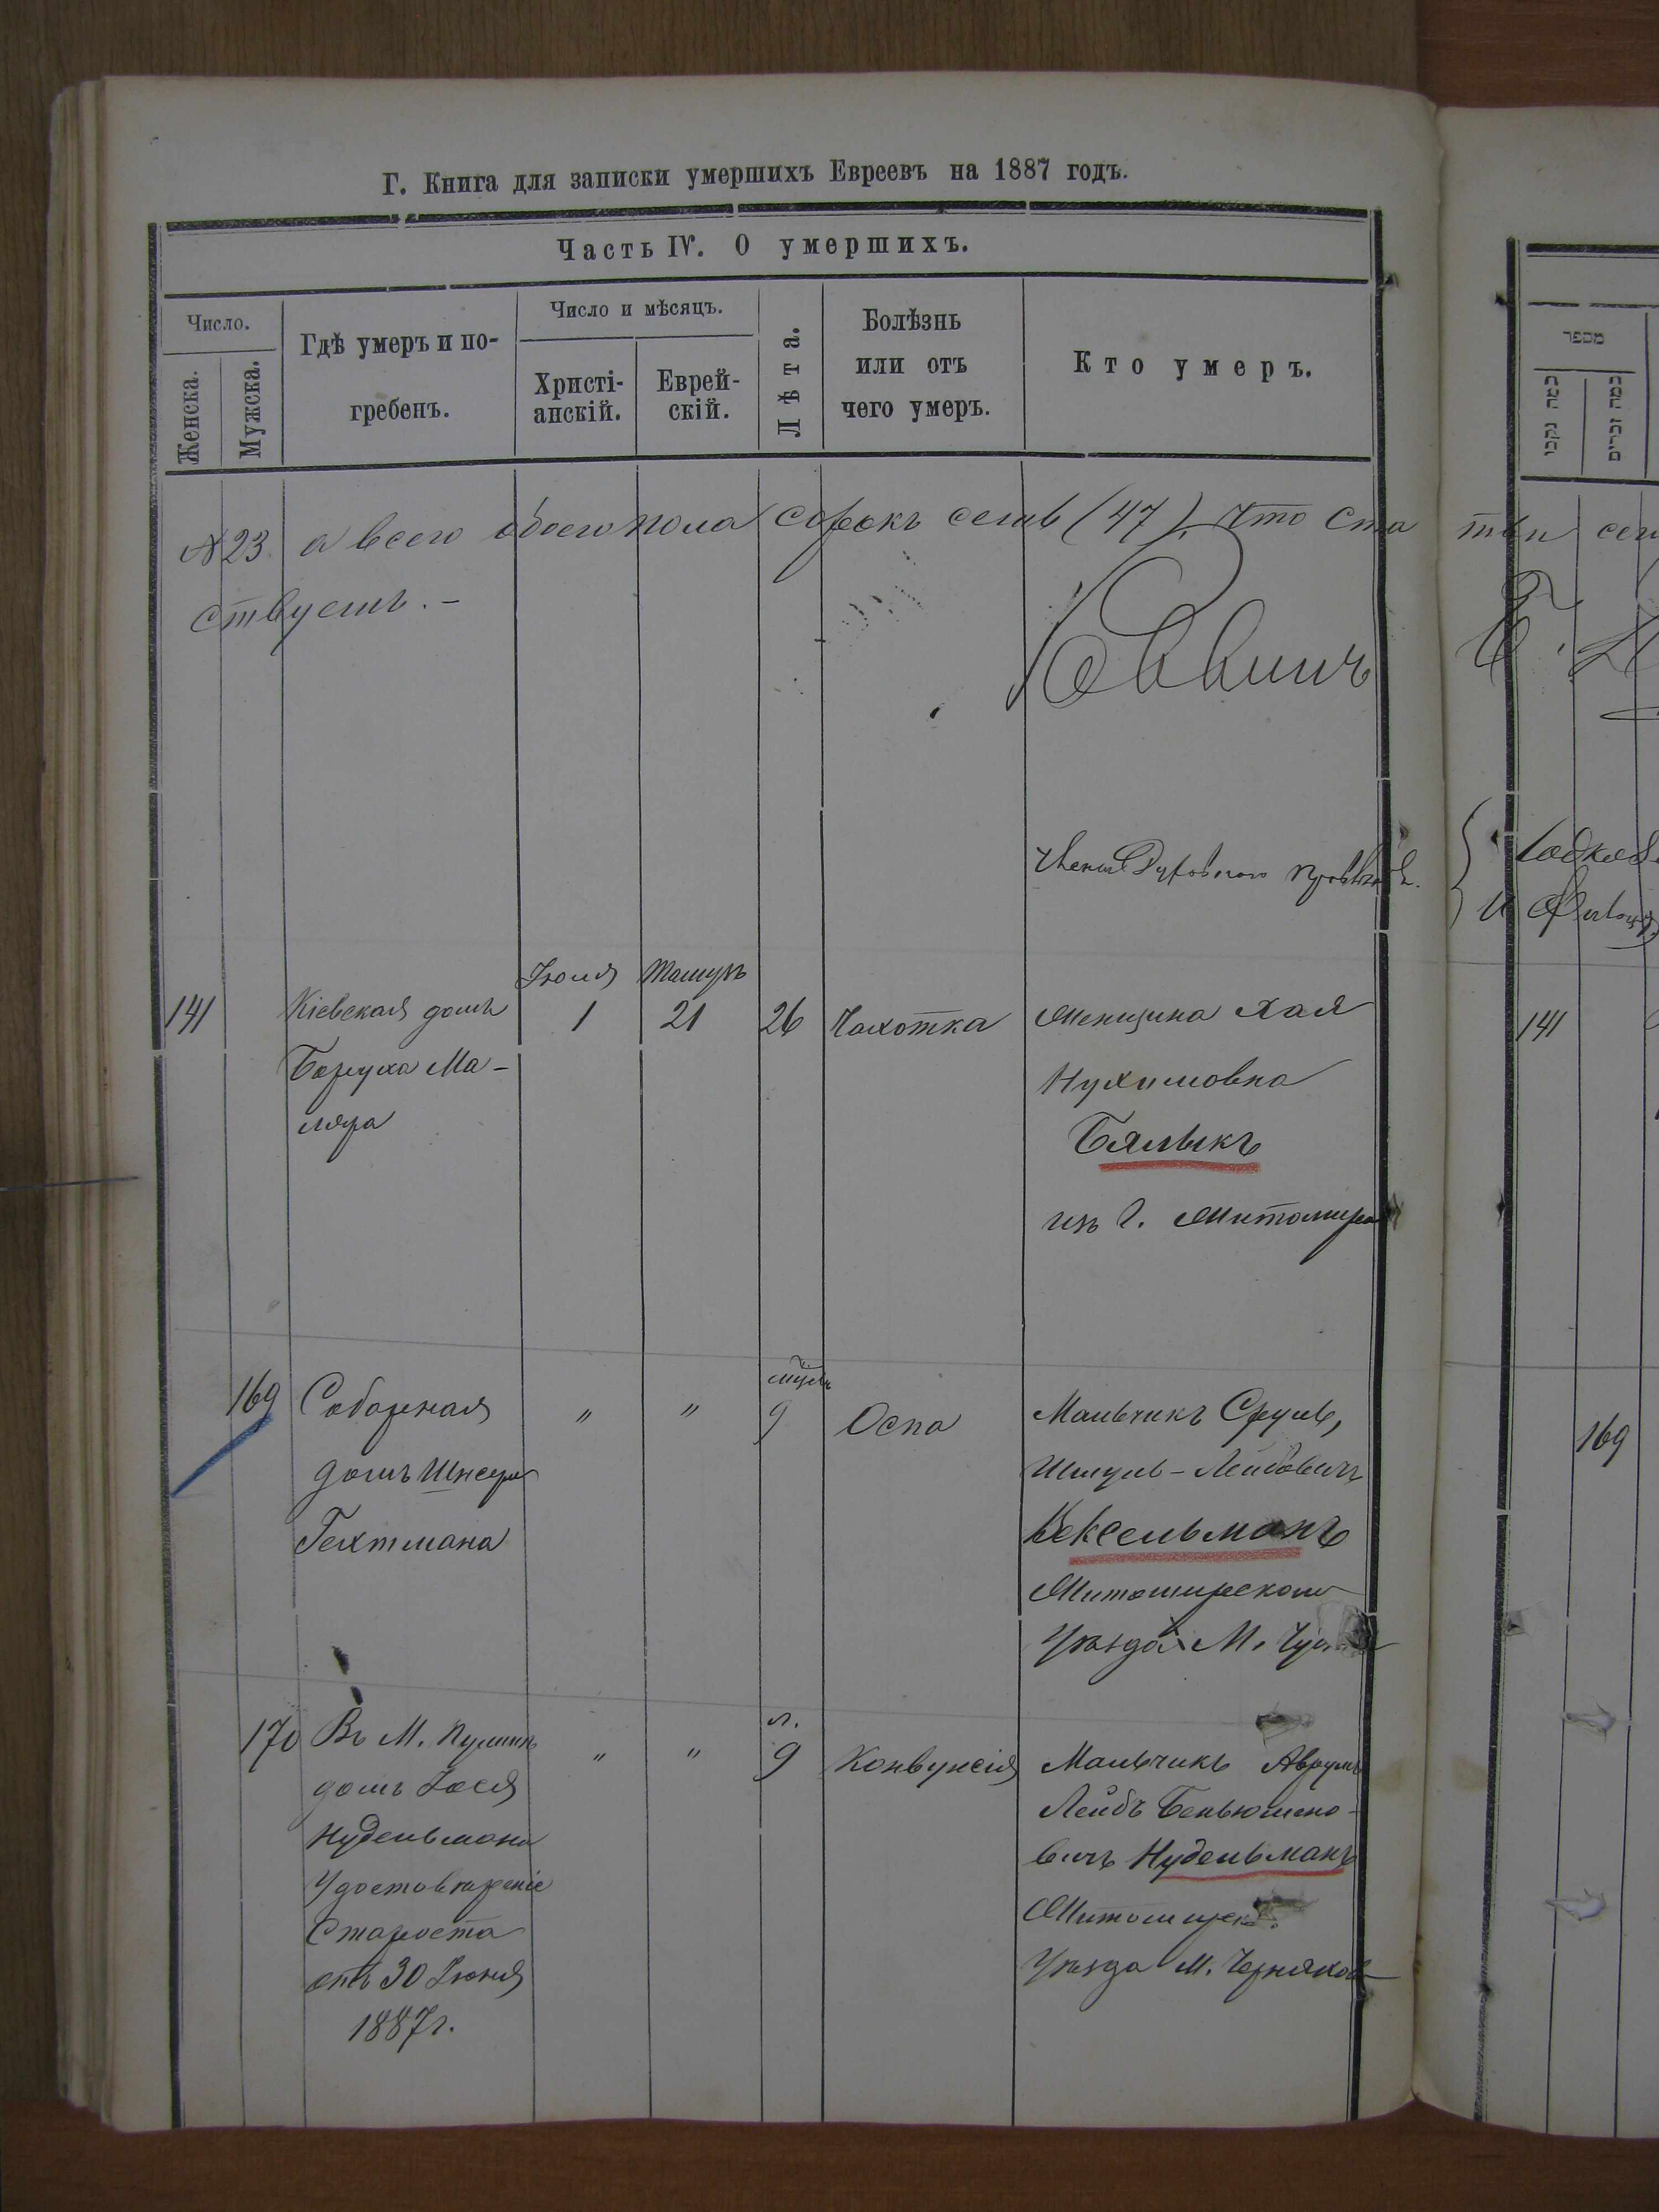 Г. Книга для записки умершихъ Евреевъ на 1887 годъ.
Часть IV. О умершихъ.
Число.
Женска.
Мужска.
Гдѣ умеръ и по-
гребенъ.
Число и мѣсяцъ.
Христі-
анскій.
Еврей-
скій.
Лѣта.
Болѣзнь
или отъ
чего умеръ.
Кто умеръ.
מספר
כמה נקבו
כמה זכרים
№ 23 а всего обоего пола сорокъ семь (47), что
ствуетъ. –
Равинъ
Члены Духовного
Іюля
Тамузъ
141
Кіевская домъ
Боруха Ма-
ляра
1
21
26
Чахотка
Женщина Хая
Нухимовна
Бялыкъ
изъ г. Житомира
141
169
Соборная
домъ Шнеера
Гехтмана
"
"
9
Оспа
Мальчикъ Сруль,
Шмуль-Лейбовичъ
Вексельманъ
Житомирскаго
Уѣзда М.
169
170
Въ М. Пулинъ
домъ Іося
Нудельмана
Удостовѣреніе
Староста
отъ 30 Іюня
1887 г.
"
"
л.
9
Конвунсія
Мальчикъ Аврумъ
Лейбъ Беньюмено-
вичъ Нудельманъ
Житомирск.
Уѣзда М. Черняхов